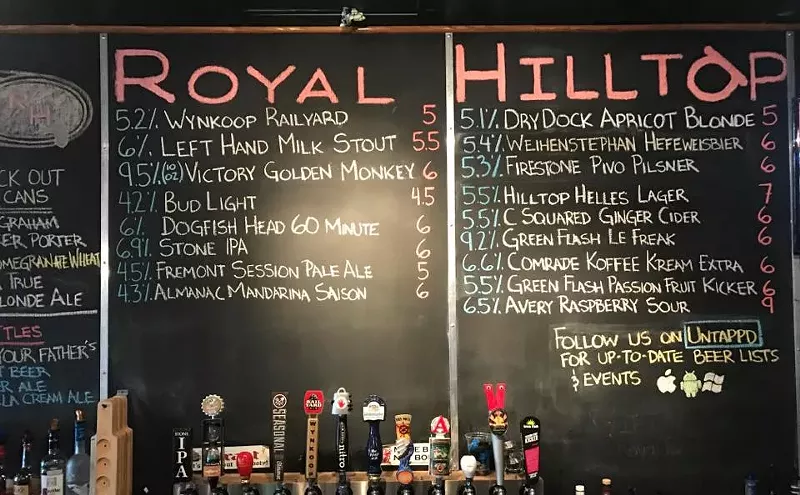 ROYAL
5.2% WYNKOOP RAILYARD 5
6% LEFT HAND MILK STOUT 5.5
9.5% (10 OZ) VICTORY GOLDEN MONKEY 6
4.2% BUD LIGHT 4.5
6% DOGFISH HEAD 60 MINUTE 6
6.9% STONE IPA 6
4.5% FREMONT SESSION PALE ALE 5
4.3% ALMANAC MANDARINA SAISON 6
HILLTOP
5.1% DRY DOCK APRICOT BLONDE 5
5.4% WEIHENSTEPHAN HEFEWEISBIER 6
5.3% FIRESTONE PIVO PILSNER 6
5.5% HILLTOP HELLES LAGER 7
5.5% C SQUARED GINGER CIDER 6
9.2% GREEN FLASH LE FREAK 6
6.6% COMRADE KOFFEE KREAM EXTRA 6
5.5% GREEN FLASH PASSION FRUIT KICKER 6
6.5% AVERY RASPBERRY SOUR 9
FOLLOW US ON UNTAPPD
FOR UP-TO-DATE BEER LISTS
& EVENTS
CK OUT
CANS
GRAHAM
ER PORTER
OMEGRANATE WHEAT
TRUE
LONDE ALE
TLES
YOUR FATHER'S
T BEER
ER ALE
LA CREAM ALE
IPA
SEASONAL
RAIL YARD
WYNKOOP
nitro